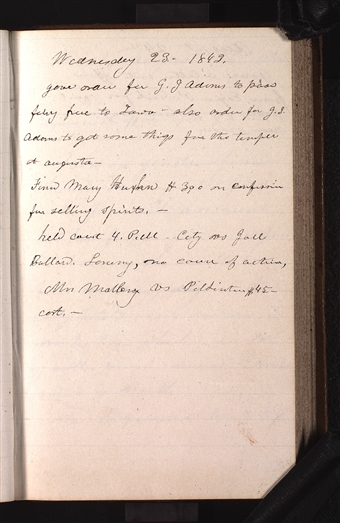 Wednesday 23. 1842.
gave order for G. J Adams to pass
fery free to Iowa - also order for G. J.
Adams to get some things from the temper
at augusta -
Fined Mary 300 on confession
for selling Spirits. -
held court 4. P.M. - City vs Gall
Ballard. Larceny, no cause of action,
Mrs vs $45-
cost. -